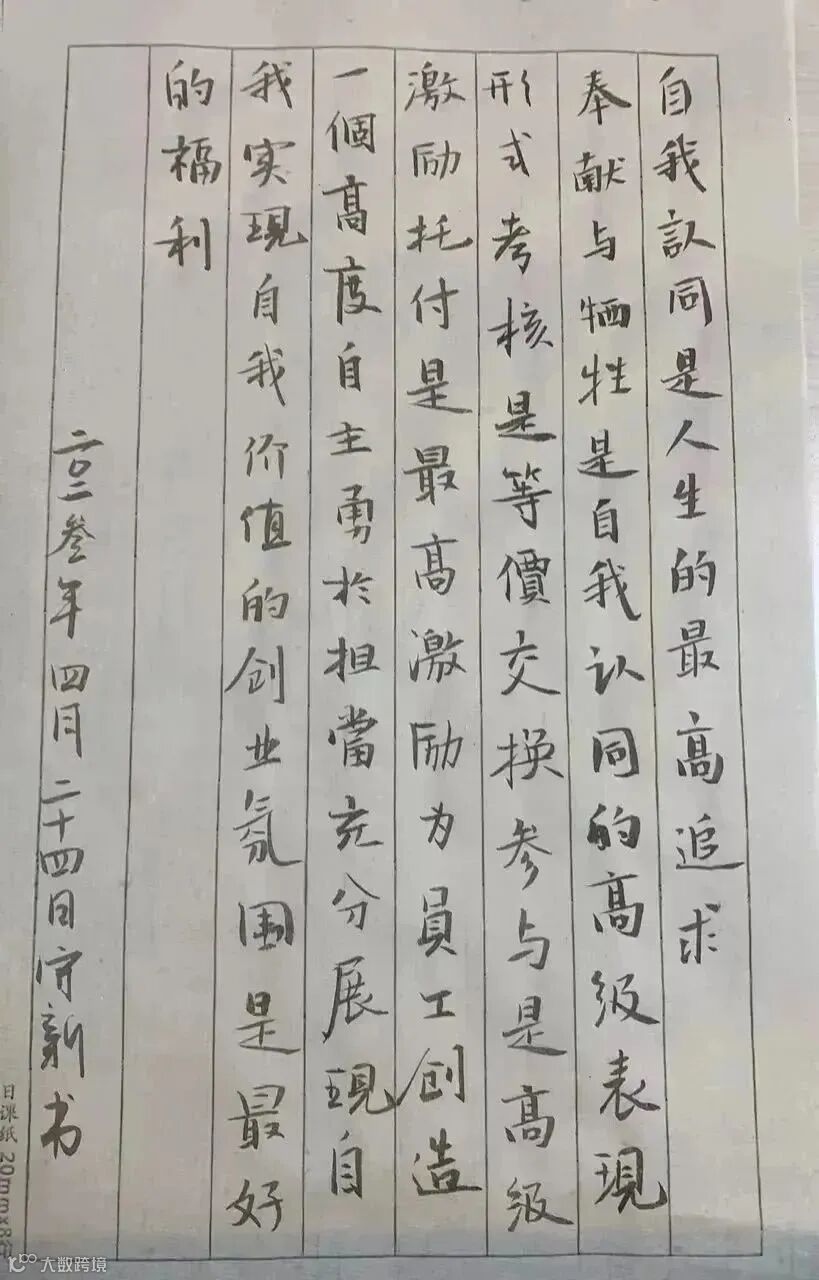 自我認同是人生的最高追求
奉献与牺牲是自我认同的高级表現
形式考核是等價交换参与是高级
激励托付是最高激励为員工创造
一個高度自主勇於担當充分展現自
我实現自我价值的创业氛围是最好
的福利
二〇二叁年四月二十四日守新书
日课纸 20mm×8行
大数跨境